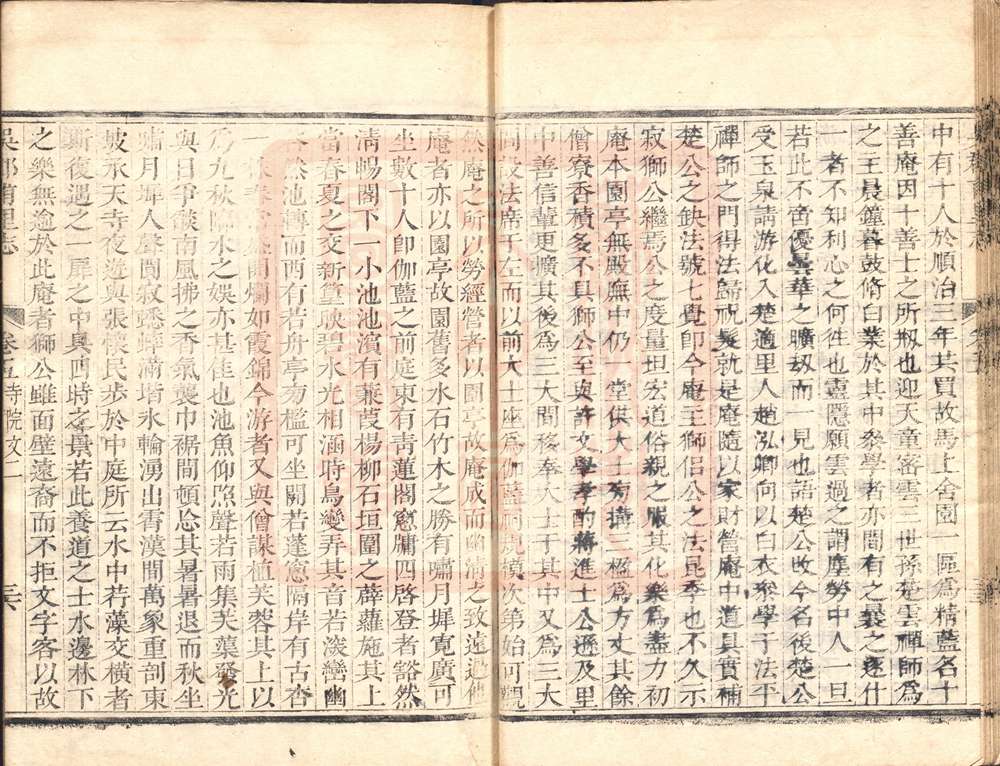 中有十人於順治三年共買故馬上舍園一區爲精藍名十
善庵因十善士之所剏也迎天童密雲三世孫楚雲禪師爲
之主晨鐘暮鼓脩白業於其中參學者亦間有之曇之逐什
一者不知利心之何徃也靈隱願雲過之謂塵勞中人一旦
若此不啻優曇華之曠刼而一見也語楚公改今名後楚公
受玉泉請游化入楚適里人趙泓卿向以白衣參學于法平
禪師之門得法歸祝髮就是庵隨以家財營庵中道具實補
楚公之缺法號七覺卽今庵主獅侶公之法昆季也不久示
寂獅公繼焉公之度量坦宏道俗親之服其化衆爲盡力初
庵本園亭無殿廡中仍一堂供大士旁搆三極爲方丈其餘
僧寮香積多不具獅公至與許文學孝酌蔣進士公遜及里
中善信輩更擴其後爲三大間移奉大士于其中又爲三大
間設法席于左而以前大士座爲伽藍祠規模次第始可觀
然庵之所以勞經營者以園亭故庵成而幽清之致遠過他
庵者亦以園亭故園舊多水石竹木之勝有嘯月墀寬廣可
坐數十人卽伽藍之前庭東有靑蓮閣窻牖四啓登者豁然
清暢閣下一小池池濵有蒹葭楊柳石垣圍之薜蘿施其上
當春夏之交新篁映碧水光相涵時鳥變弄其音若滚巒幽
谷然池轉而西有若舟亭為檻可坐關若蓬窻隔岸有古杏
一株春至盛開爛如霞錦今游者又與僧謀植芙蓉其上以
爲九秋臨水之娛亦甚佳也池魚仰照聲若雨集芙蕖發光
與日爭媖南風拂之香氣襲巾裾間頓忿其暑暑退而秋坐
嘯月墀人聲闃寂蟋蟀滿堦氷輪湧出霄漢間萬象重剖東
坡承天寺夜遊與張懷民步於中庭所云水中荇藻交橫者
斯復遇之一扉之中具四時之景若此養道之士水邊林下
之樂無逾於此庵者獅公雖面壁遠裔而不拒文字客以故
吳郡甫里志
卷五寺院文二